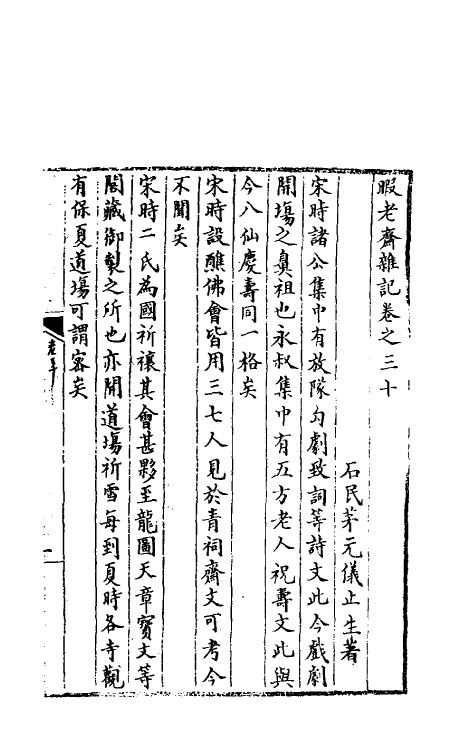 暇老齋雜記卷之三十
石民茅元儀止生著
宋時諸公集中有放隊勾劇致詞等詩文此今戲劇
開塲之鼻祖也永叔集中有五方老人祝壽文此與
今八仙慶壽同一格矣
宋時設醮佛會皆用三七人見於青祠齋文可考今
不聞矣
宋時二氏為國祈禳其會甚夥至龍圖天章寳文等
閣藏御製之所也亦開道塲祈雪每到夏時各寺觀
有保夏道塲可謂寄矣